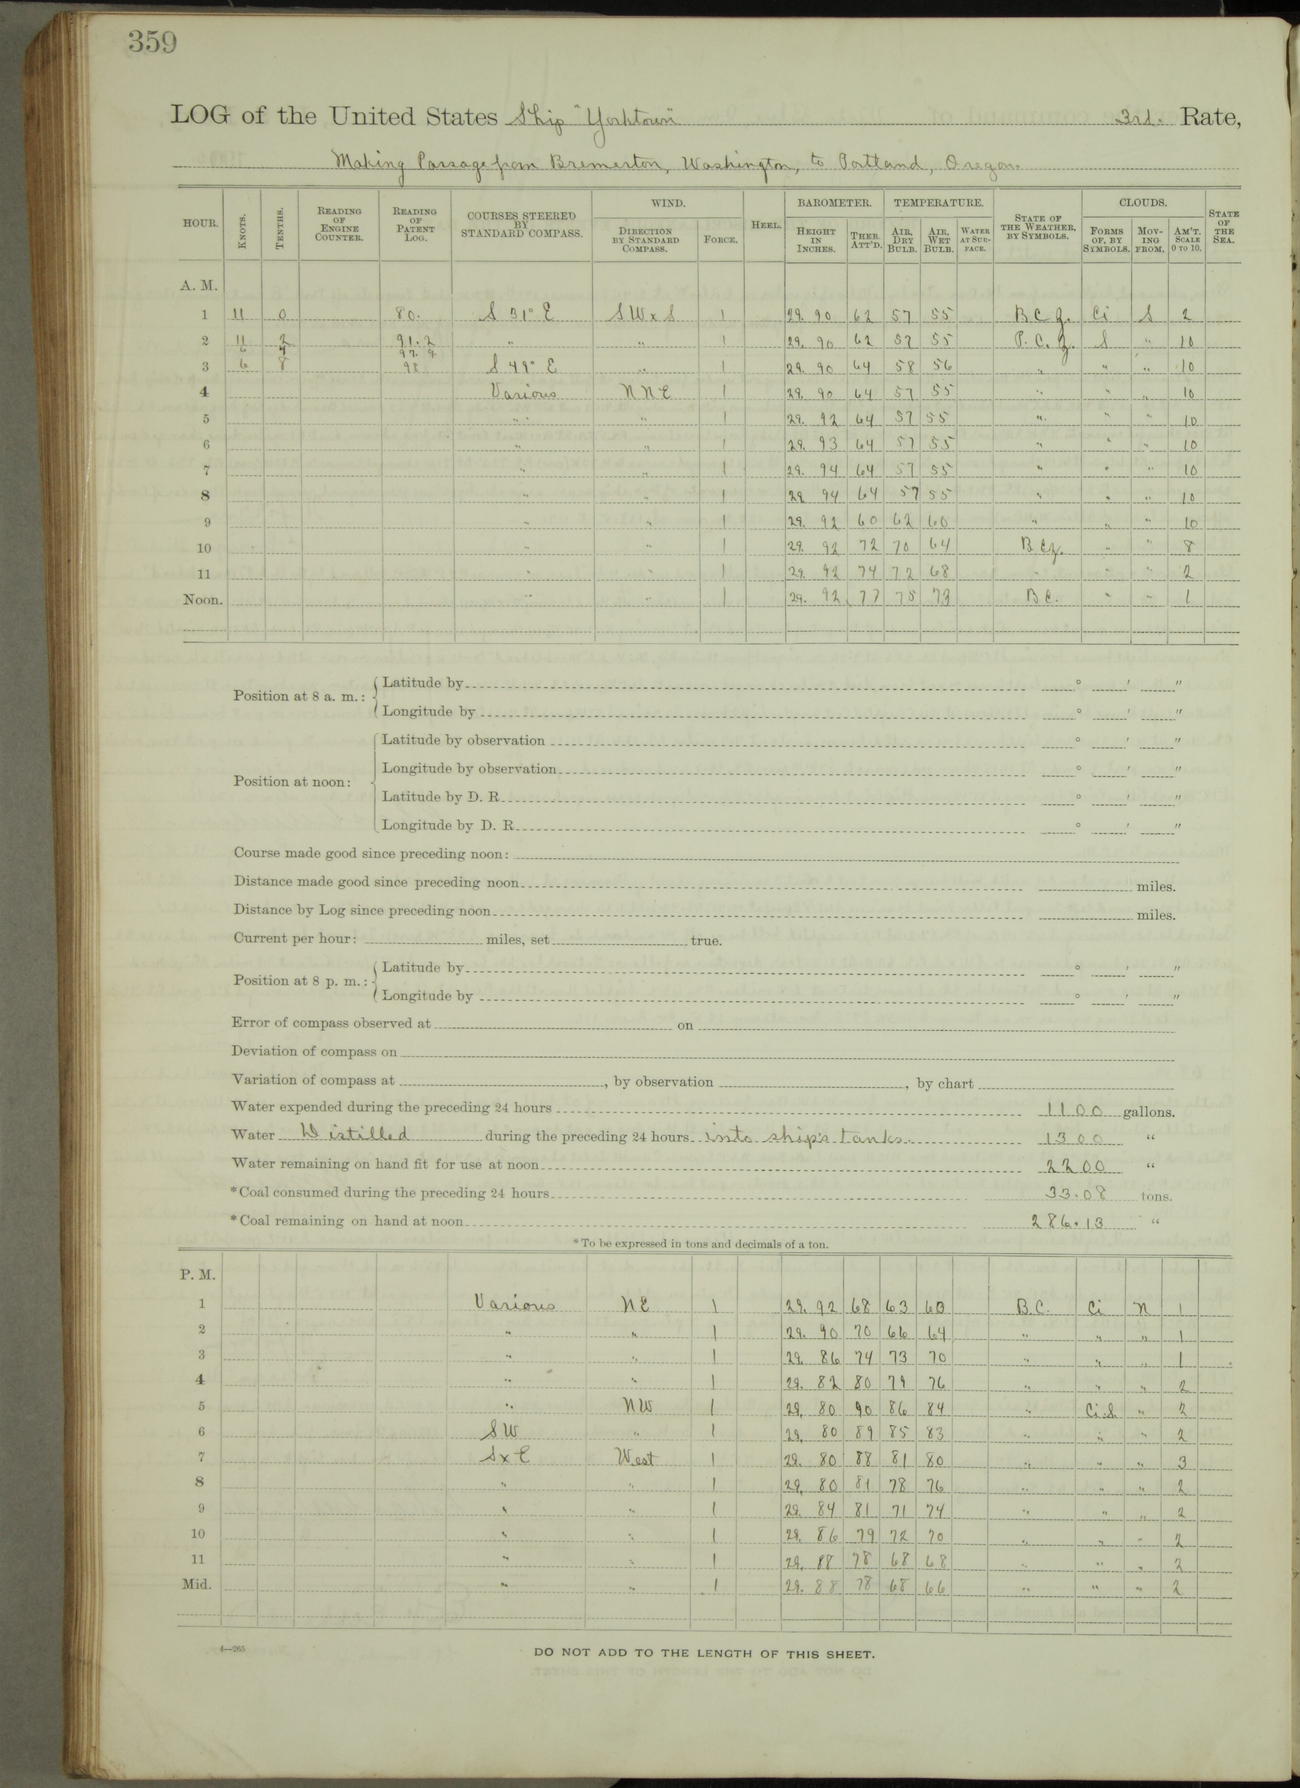 359
LOG of the United States Ship "Yorktown" 3rd. Rate,
Making Passage from Bremerton, Washington, to Portland, Oregon.
HOUR. KNOTS. TENTHS. READING OF ENGINE COUNTER. READING OF PATENT LOG. COURSES STEERED BY STANDARD COMPASS. WIND. DIRECTION BY STANDARD COMPASS. FORCE. HEEL. BAROMETER. HEIGHT IN INCHES. THER. ATT'D. TEMPERATURE. AIR, DRY BULB. AIR, WET BULB. WATER AT SURFACE. STATE OF THE WEATHER, BY SYMBOLS. CLOUDS. FORMS OF, BY SYMBOLS. MOVING FROM. AM'T. SCALE 0 TO 10. STATE OF THE SEA.
A. M.
1 11 0 80. S 31° E SWxS 1 29. 90 62 57 55 B.C.Z. Ci S 2
2 11 2 91.2 " " 1 29. 90 62 57 55 O.C.Z. S " 10
6 7 97.9
3 6 8 98 S 49° E " 1 29. 90 64 58 56 " " " 10
4 Various NNE 1 29. 90 64 57 55 " " " 10
5 " " 1 29. 92 64 57 55 " " " 10
6 " " 1 29. 93 64 57 55 " " " 10
7 " " 1 29. 94 64 57 55 " " " 10
8 " " 1 29. 94 64 57 55 " " " 10
9 " " 1 29. 92 60 62 60 " " " 10
10 " " 1 29. 92 72 70 64 B.C.Z. " " 8
11 " " 1 29. 92 74 72 68 " " " 2
Noon. " " 1 29. 92 77 75 73 B.C. " " 1
Position at 8 a. m.: Latitude by ° ′ ″
Longitude by ° ′ ″
Position at noon: Latitude by observation ° ′ ″
Longitude by observation ° ′ ″
Latitude by D. R. ° ′ ″
Longitude by D. R. ° ′ ″
Course made good since preceding noon:
Distance made good since preceding noon miles.
Distance by Log since preceding noon miles.
Current per hour: miles, set true.
Position at 8 p. m.: Latitude by ° ′ ″
Longitude by ° ′ ″
Error of compass observed at on
Deviation of compass on
Variation of compass at , by observation , by chart
Water expended during the preceding 24 hours 1100 gallons.
Water Distilled during the preceding 24 hours into ship's tanks. 1300 "
Water remaining on hand fit for use at noon 2200 "
*Coal consumed during the preceding 24 hours 33.08 tons.
*Coal remaining on hand at noon 286.13 "
*To be expressed in tons and decimals of a ton.
P. M.
1 Various NE 1 29. 92 68 63 60 B.C. Ci N 1
2 " " 1 29. 90 70 66 64 " " " 1
3 " " 1 29. 86 74 73 70 " " " 1
4 " " 1 29. 82 80 79 76 " " " 2
5 " NW 1 29. 80 90 86 84 " Ci.S. " 2
6 SW " 1 29. 80 89 85 83 " " " 2
7 SxE West 1 29. 80 88 81 80 " " " 3
8 " " 1 29. 80 81 78 76 " " " 2
9 " " 1 29. 84 81 71 74 " " " 2
10 " " 1 29. 86 79 72 70 " " " 2
11 " " 1 29. 88 78 68 68 " " " 2
Mid. " " 1 29. 88 78 68 66 " " " 2
4—265
DO NOT ADD TO THE LENGTH OF THIS SHEET.